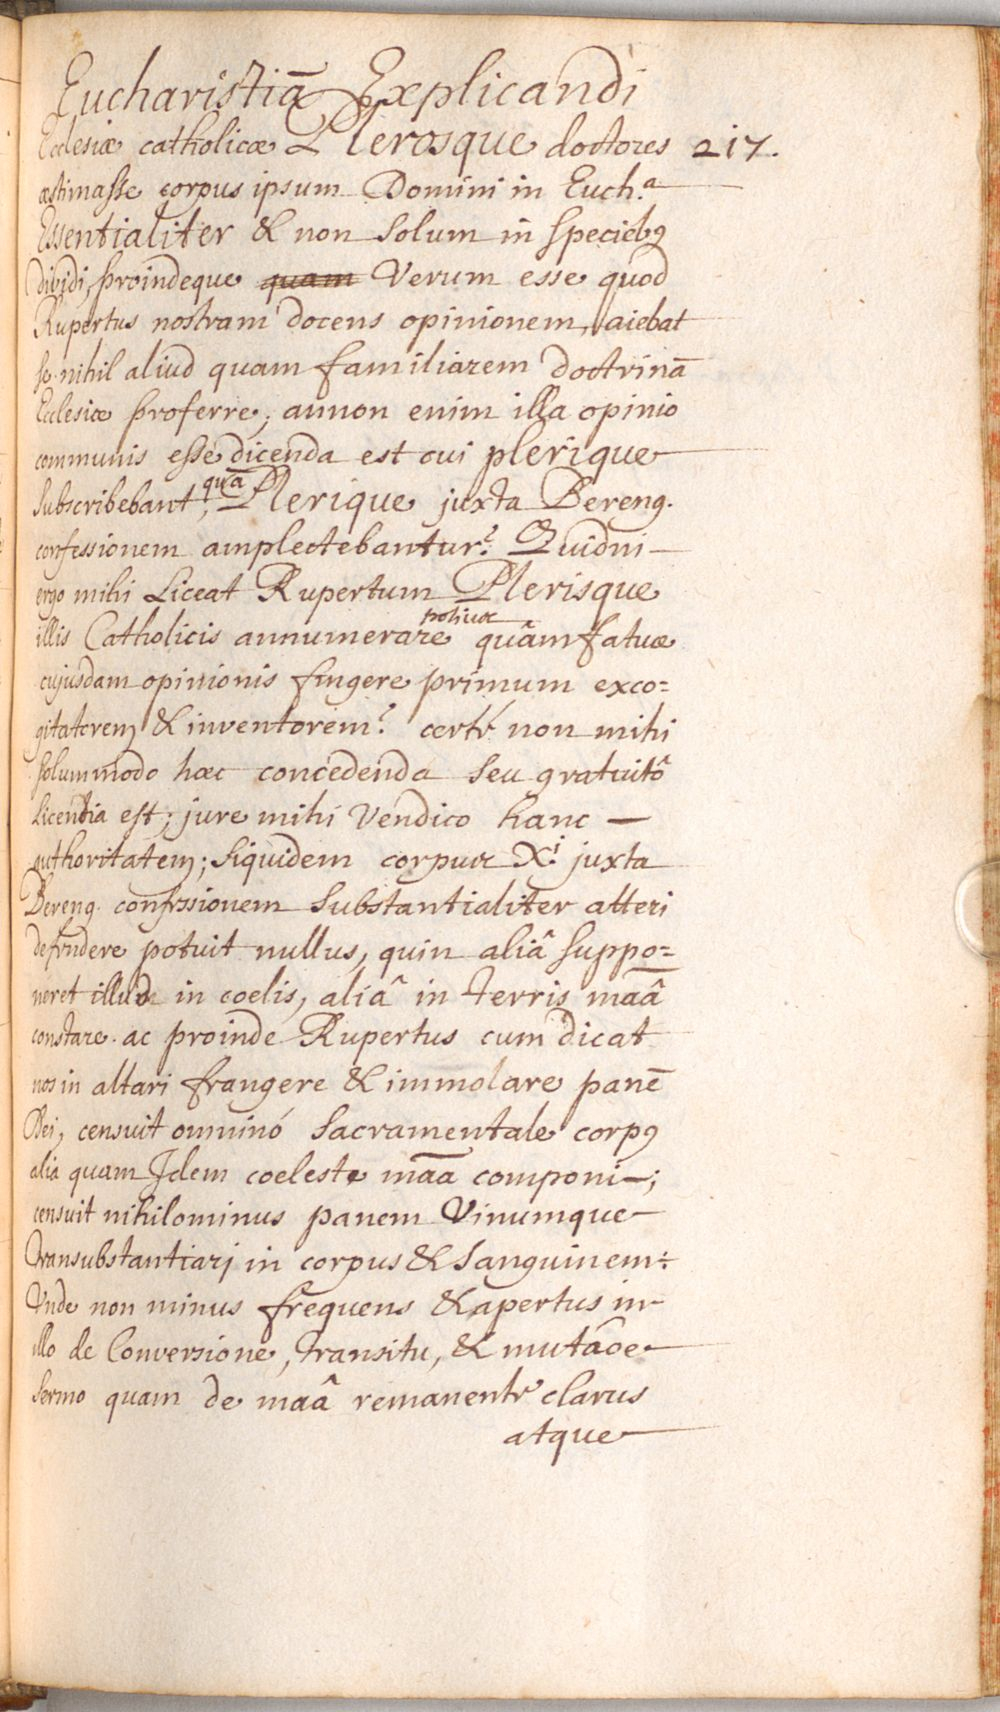 Eucharistiā Explicandi
Ecclesiæ catholicæ Plerosque doctores 217.
æstimasse corpus ipsum Domini in Euch.ᵃ
Essentialiter & non solum in speciebꝯ
dividi, proindeque ~~quam~~ Verum esse quod
Rupertus nostram docens opinionem, aiebat
se nihil aliud quam familiarem doctrinā
Ecclesiæ proferre; annon enim illa opinio
communis esse dicenda est cui plerique
subscribebant, quā Plerique juxta Bereng.
confessionem amplectebantur? Quidni
ergo mihi Liceat Rupertum Plerisque
illis Catholicis annumerare potius quâm fatuæ
cujusdam opinionis fingere primum exco=
gitatorem & inventorem? certè non mihi
solummodo hæc concedenda seu gratuitô
Licentia est; jure mihi Vendico hanc —
authoritatem; siquidem corpus Xⁱ. juxta
Bereng. confessionem substantialiter atteri
defendere potuit nullus, quin aliâ suppo=
neret illud in coelis, aliâ in terris maâ
constare. ac proinde Rupertus cum dicat
nos in altari frangere & immolare panē
Dei, censuit omninó sacramentale corpꝯ
alia quam Idem coeleste māa componi—;
censuit nihilominus panem Vinumque
transubstantiari in corpus & sanguinem:
Unde non minus frequens & apertus in
illo de Conversione, transitu, & mutâoe
sermo quam de maâ remanente clarus
atque